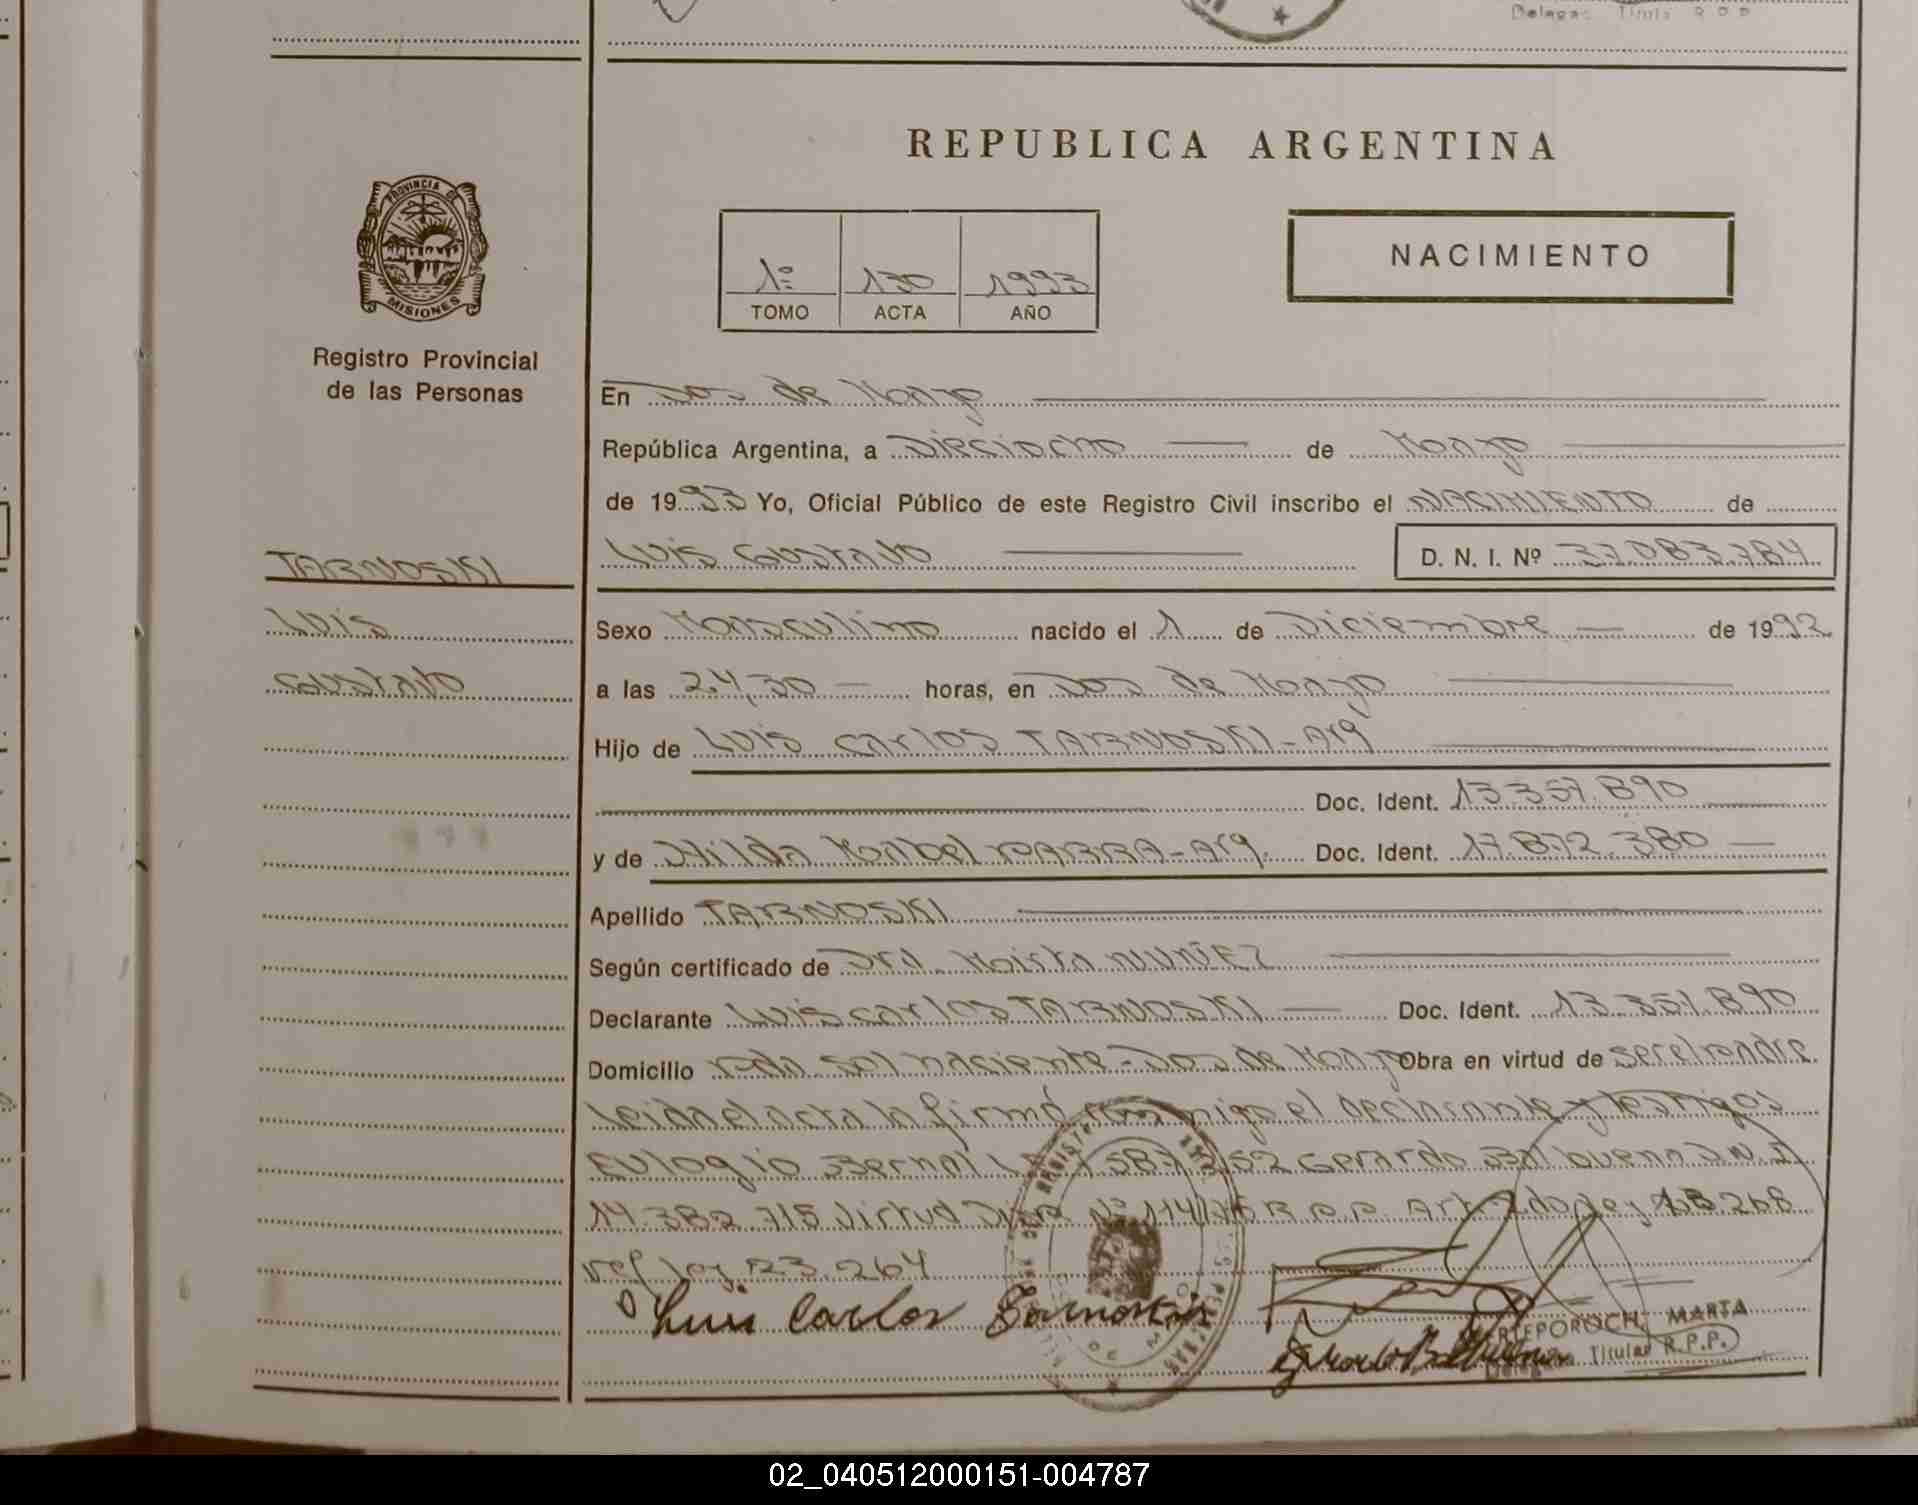 Delegac. Titula R.P.P.
REPUBLICA ARGENTINA
PROVINCIA DE
MISIONES
Registro Provincial
de las Personas
NACIMIENTO
1º 130 1993
TOMO ACTA AÑO
En Dos de Mayo
República Argentina, a Dieciocho de Mayo
de 1993 Yo, Oficial Público de este Registro Civil inscribo el NACIMIENTO de
TARNOSKI
Luis Gustavo D. N. I. Nº 37.083.784
Luis
Sexo Masculino nacido el 1 de Diciembre de 1992
Gustavo
a las 24,30 horas, en Dos de Mayo
Hijo de Luis Carlos TARNOSKI - Arg
Doc. Ident. 13.357.890
y de Hilda Mabel PARRA - Arg. Doc. Ident. 17.872.380
Apellido TARNOSKI
Según certificado de Dra. NUÑEZ
Declarante Luis Carlos TARNOSKI Doc. Ident. 13.357.890
Domicilio rada sol naciente - Dos de Mayo Obra en virtud de ser el padre.
Leida el acta la firmó conmigo el declarante y testigos
Eulogio Bernal 52 Gerardo Balbuena D.N.I
14.382.715 Virtud Nº 114/76 R.P.P. Art. 2do Ley 18.268
ref ley 23.264
Luis Carlos Tarnoski
MARTA
Titular R.P.P.
02_040512000151-004787